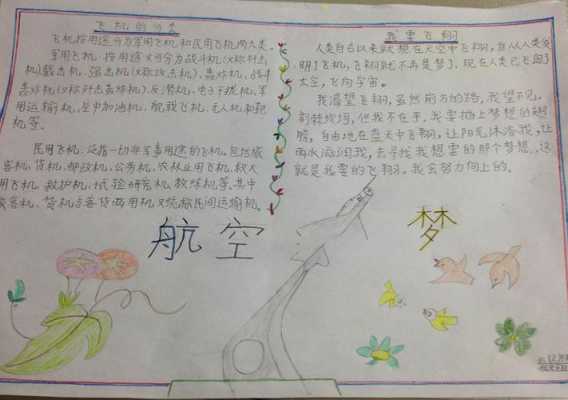 飞机的分类
飞机按用途分为军用飞机和民用飞机两大类。
军用飞机,按用途又可分为战斗机(又称歼击
机)截击机、强击机(又称攻击机)、轰炸机、战斗
轰炸机(又称歼击轰炸机)、反潜机、电子干扰机、军
用运输机、空中加油机、舰载飞机、无人机和靶
机等。
民用飞机,泛指一切非军事用途的飞机,包括旅
客机、货机、邮政机、公务机、农林业用飞机、救火
用飞机、救护机、试验研究机、教练机等。其中
旅客机、货机与客货两用机又统称民间运输机。
我要飞翔
人类自古以来就想在天空中飞翔,自从人类发
明了飞机,飞翔就不再是梦了,现在人类已飞向了
太空,飞向宇宙。
我渴望飞翔,虽然前方的路,我望不见,
荆棘终绕,但我不在乎,我要插上梦想的翅
膀,自由地在蓝天中飞翔,让阳光沐浴我,让
雨水滋润我,去寻找我想要的那个梦想。这
就是我要的飞翔。我会努力向上的。
航空
梦